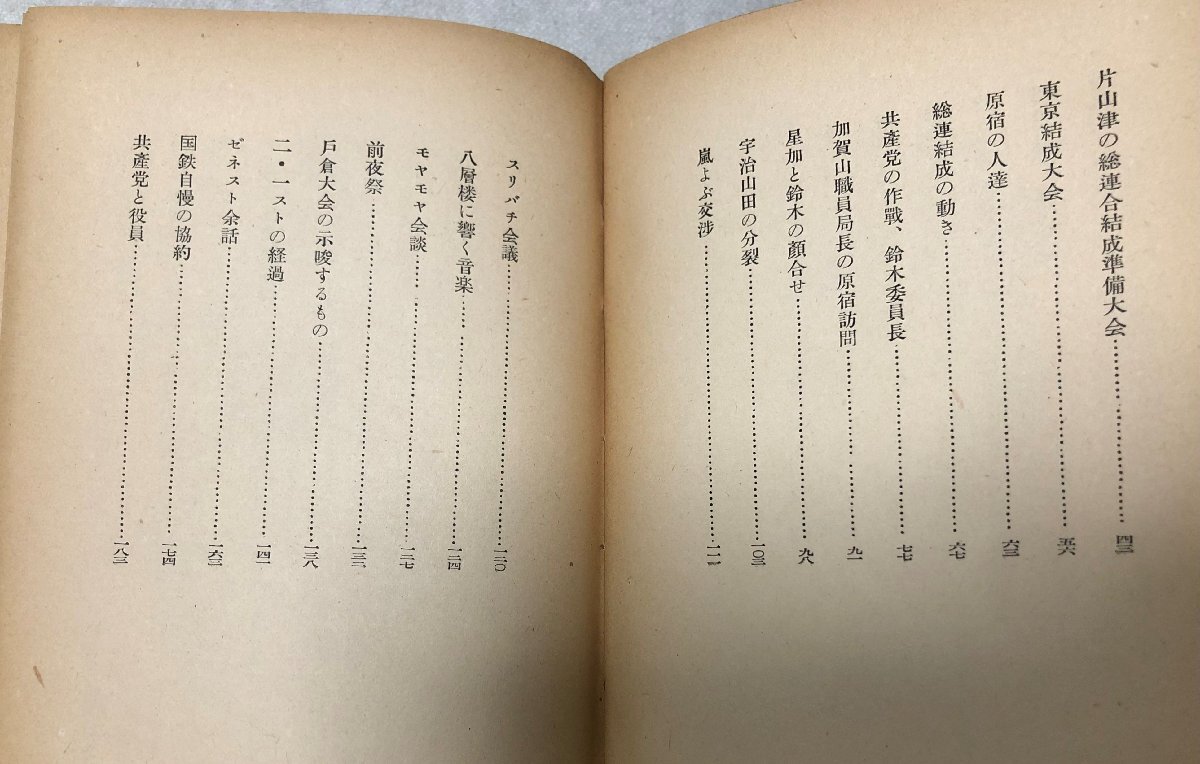 片山津の総連合結成準備大会……………………四三
東京結成大会……………………五六
原宿の人達……………………六三
総連結成の動き……………………六七
共産党の作戦、鈴木委員長……………………七七
加賀山職員局長の原宿訪問……………………九一
星加と鈴木の顔合せ……………………九八
宇治山田の分裂……………………一〇三
嵐よぶ交渉……………………一一一
スリバチ会議……………………一二〇
八層楼に響く音楽……………………一二四
モヤモヤ会談……………………一二七
前夜祭……………………一三三
戸倉大会の示唆するもの……………………一三八
二・一ストの経過……………………一四一
ゼネスト余話……………………一六三
国鉄自慢の協約……………………一七四
共産党と役員……………………一八三